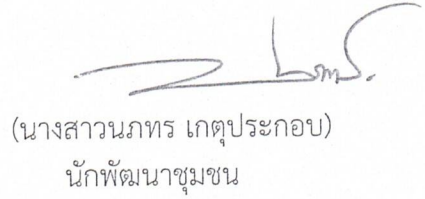 (นางสาวนภทร เกตุประกอบ)
นักพัฒนาชุมชน